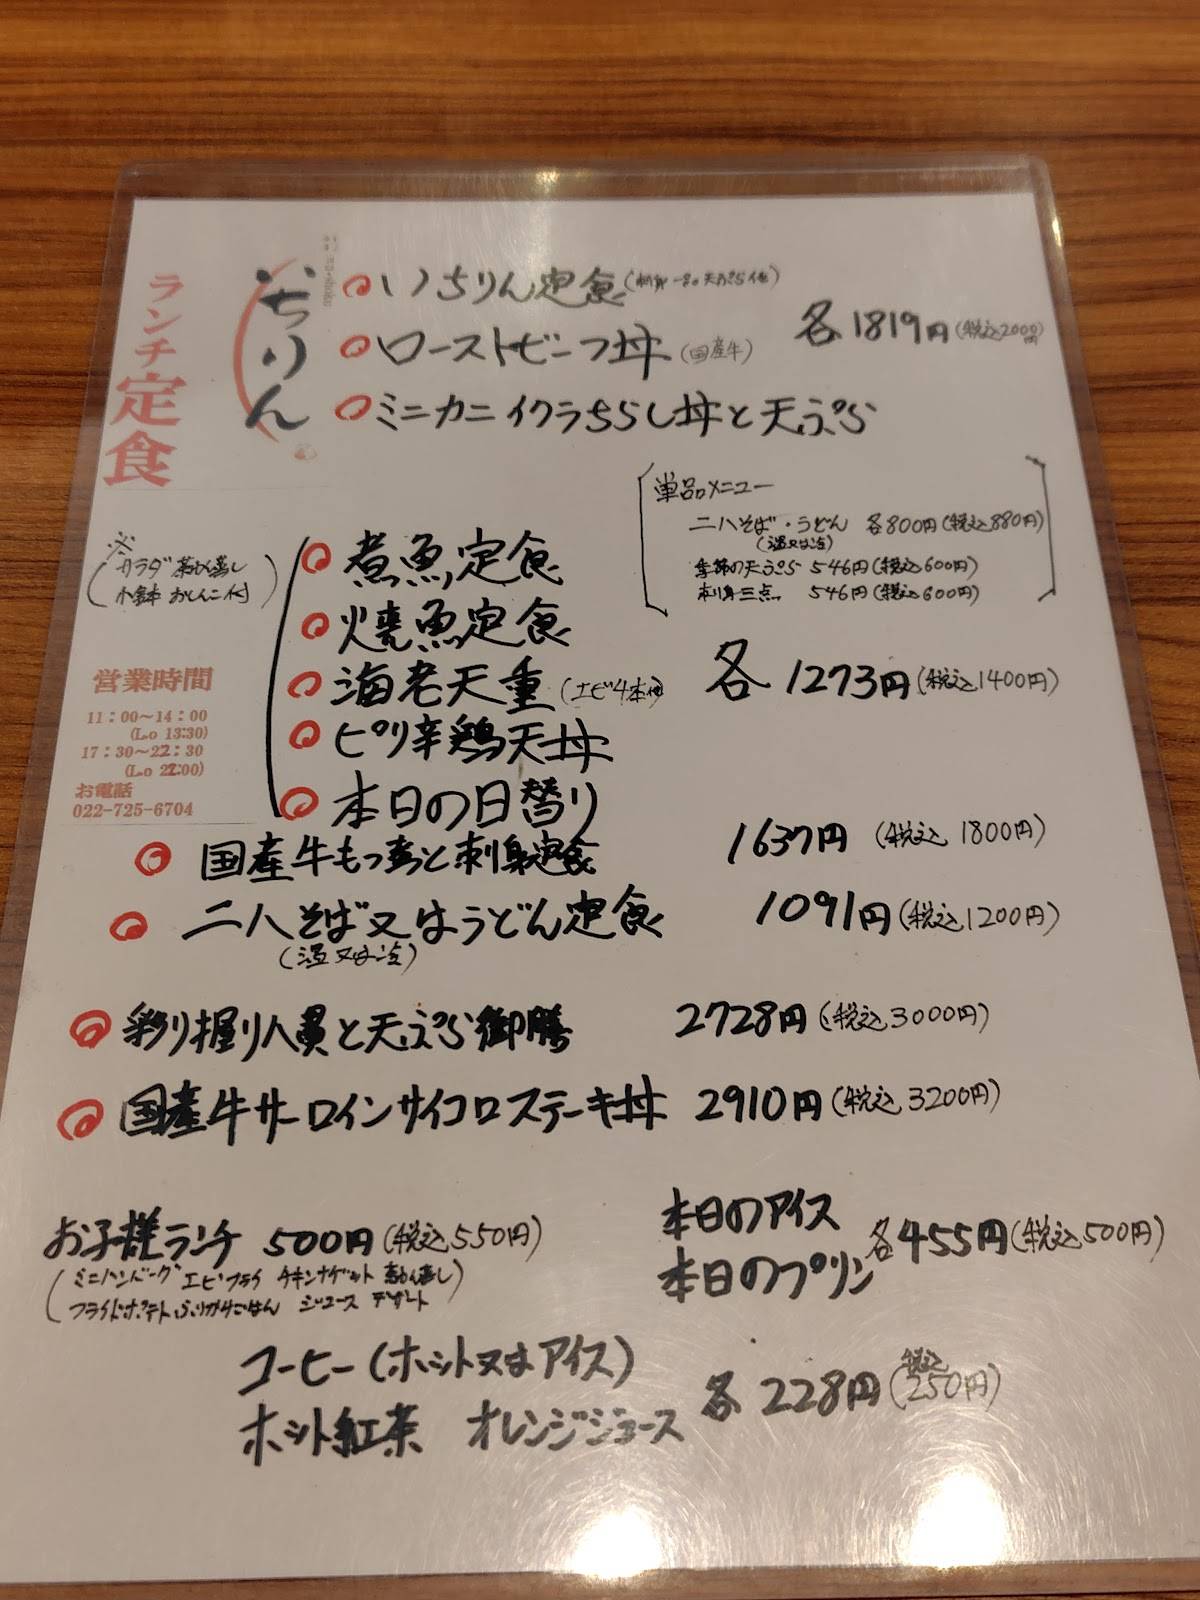 ランチ定食
いちりん
いちりん定食(刺身一品天ぷら他)
ローストビーフ丼(国産牛)
各1819円(税込2000円)
ミニカニイクラちらし丼と天ぷら
単品メニュー
二八そば・うどん 各800円(税込880円)
(温又は冷)
季節の天ぷら 546円(税込600円)
刺身三点 546円(税込600円)
※
(サラダ 茶わん蒸し
小鉢 おしんこ付)
煮魚定食
焼魚定食
海老天重(エビ4本他)
各1273円(税込1400円)
ピリ辛鶏天丼
本日の日替り
営業時間
11:00〜14:00
(Lo 13:30)
17:30〜22:30
(Lo 22:00)
お電話
022-725-6704
国産牛もつ煮と刺身定食 1637円(税込1800円)
二八そば又はうどん定食 1091円(税込1200円)
(温又は冷)
彩り握り八貫と天ぷら御膳 2728円(税込3000円)
国産牛サーロインサイコロステーキ丼 2910円(税込3200円)
お子様ランチ 500円(税込550円)
(ミニハンバーグ エビフライ チキンナゲット 茶わん蒸し)
フライドポテト ふりかけごはん ジュース デザート
本日のアイス
本日のプリン
各455円(税込500円)
コーヒー(ホット又はアイス)
ホット紅茶 オレンジジュース
各228円(税込250円)